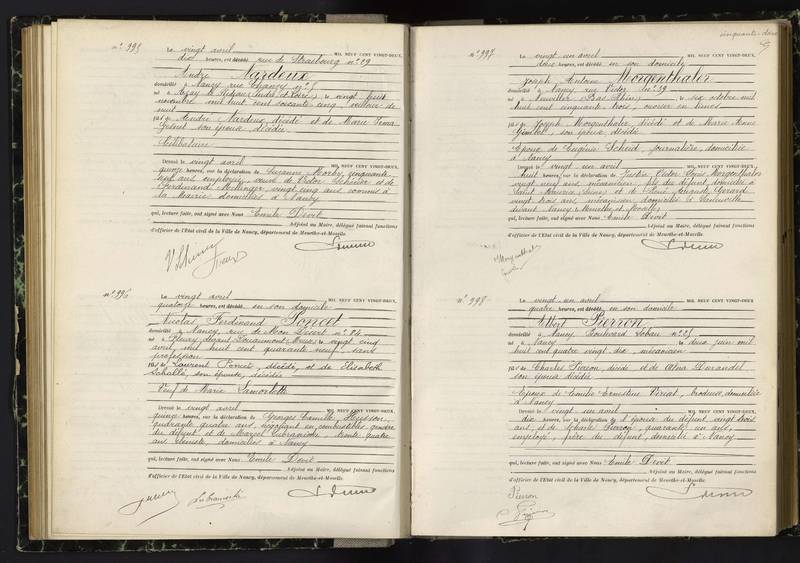 n° 995
Le vingt avril MIL NEUF CENT VINGT-DEUX,
dix heures, est décédé rue de Strasbourg n° 29
André Mardeux
domicilié à Nancy rue Chanzy n°
né à Azay le Rideau (Indre et Loire) le vingt huit
novembre mil huit cent soixante cinq, veilleur de
nuit
fils de André Mardeux décédé et de Marie
son épouse décédée
Célibataire
Dressé le vingt avril MIL NEUF CENT VINGT-DEUX,
quinze heures, sur la déclaration de Suzanne cinquante
ans employée, veuve de Victor et de
Ferdinand vingt cinq ans commis à
la Mairie domiciliés à Nancy
qui, lecture faite, ont signé avec Nous Emile Devit
Adjoint au Maire, délégué faisant fonctions
d'officier de l'Etat civil de la Ville de Nancy, département de Meurthe-et-Moselle.
n° 996
Le vingt avril MIL NEUF CENT VINGT-DEUX,
quatorze heures, est décédé en son domicile
Nicolas Ferdinand Poncet
domicilié à Nancy, rue de Mon Désert n° 84
né à Fleury devant Douaumont Meuse le vingt cinq
avril mil huit cent quarante neuf, sans
profession
fils de Laurent Poncet, décédé, et de Elisabeth
son épouse, décédée
Veuf de Marie
Dressé le vingt avril MIL NEUF CENT VINGT-DEUX,
quinze heures, sur la déclaration de Georges Camille
quarante quatre ans, négociant en combustibles, gendre
du défunt et de Marcel trente quatre
ans domiciliés à Nancy
qui, lecture faite, ont signé avec Nous Emile Devit
Adjoint au Maire, délégué faisant fonctions
d'officier de l'Etat civil de la Ville de Nancy, département de Meurthe-et-Moselle.
n° 997
Le vingt un avril MIL NEUF CENT VINGT-DEUX,
heures, est décédé en son domicile
Joseph Antoine Morgenthaler
domicilié à Nancy, rue Victor n° 39
né à (Bas Rhin) le six octobre mil
huit cent cinquante trois, ouvrier en limes
fils de Joseph Morgenthaler décédé et de Marie Anne
son épouse décédée
Epoux de Eugénie Scheid journalière, domiciliée
à Nancy
Dressé le vingt un avril MIL NEUF CENT VINGT-DEUX,
huit heures, sur la déclaration de Justin Victor Louis Morgenthaler
vingt neuf ans mécanicien, fils du défunt domicilié à
et de Louis Auguste Gérard
vingt trois ans mécanicien domicilié à
devant Nancy (Meurthe et Moselle)
qui, lecture faite, ont signé avec Nous Emile Devit
Adjoint au Maire, délégué faisant fonctions
d'officier de l'Etat civil de la Ville de Nancy, département de Meurthe-et-Moselle.
Morgenthaler
n° 998
Le vingt un avril MIL NEUF CENT VINGT-DEUX,
quatre heures, est décédé en son domicile
Albert Pierron
domicilié à Nancy Boulevard Lobau n° 25
né à Nancy le deux juin mil
huit cent quatre vingt dix mécanicien
fils de Charles Pierron décédé et de Durandel
son épouse décédée
Epoux de Emilie Ernestine brodeuse domiciliée
à Nancy
Dressé le vingt un avril MIL NEUF CENT VINGT-DEUX,
dix heures, sur la déclaration de l'épouse du défunt, vingt trois
ans, et de Charles quarante un ans,
employé, frère du défunt, domicilié à Nancy
qui, lecture faite, ont signé avec Nous Emile Devit
Adjoint au Maire, délégué faisant fonctions
d'officier de l'Etat civil de la Ville de Nancy, département de Meurthe-et-Moselle.
Pierron